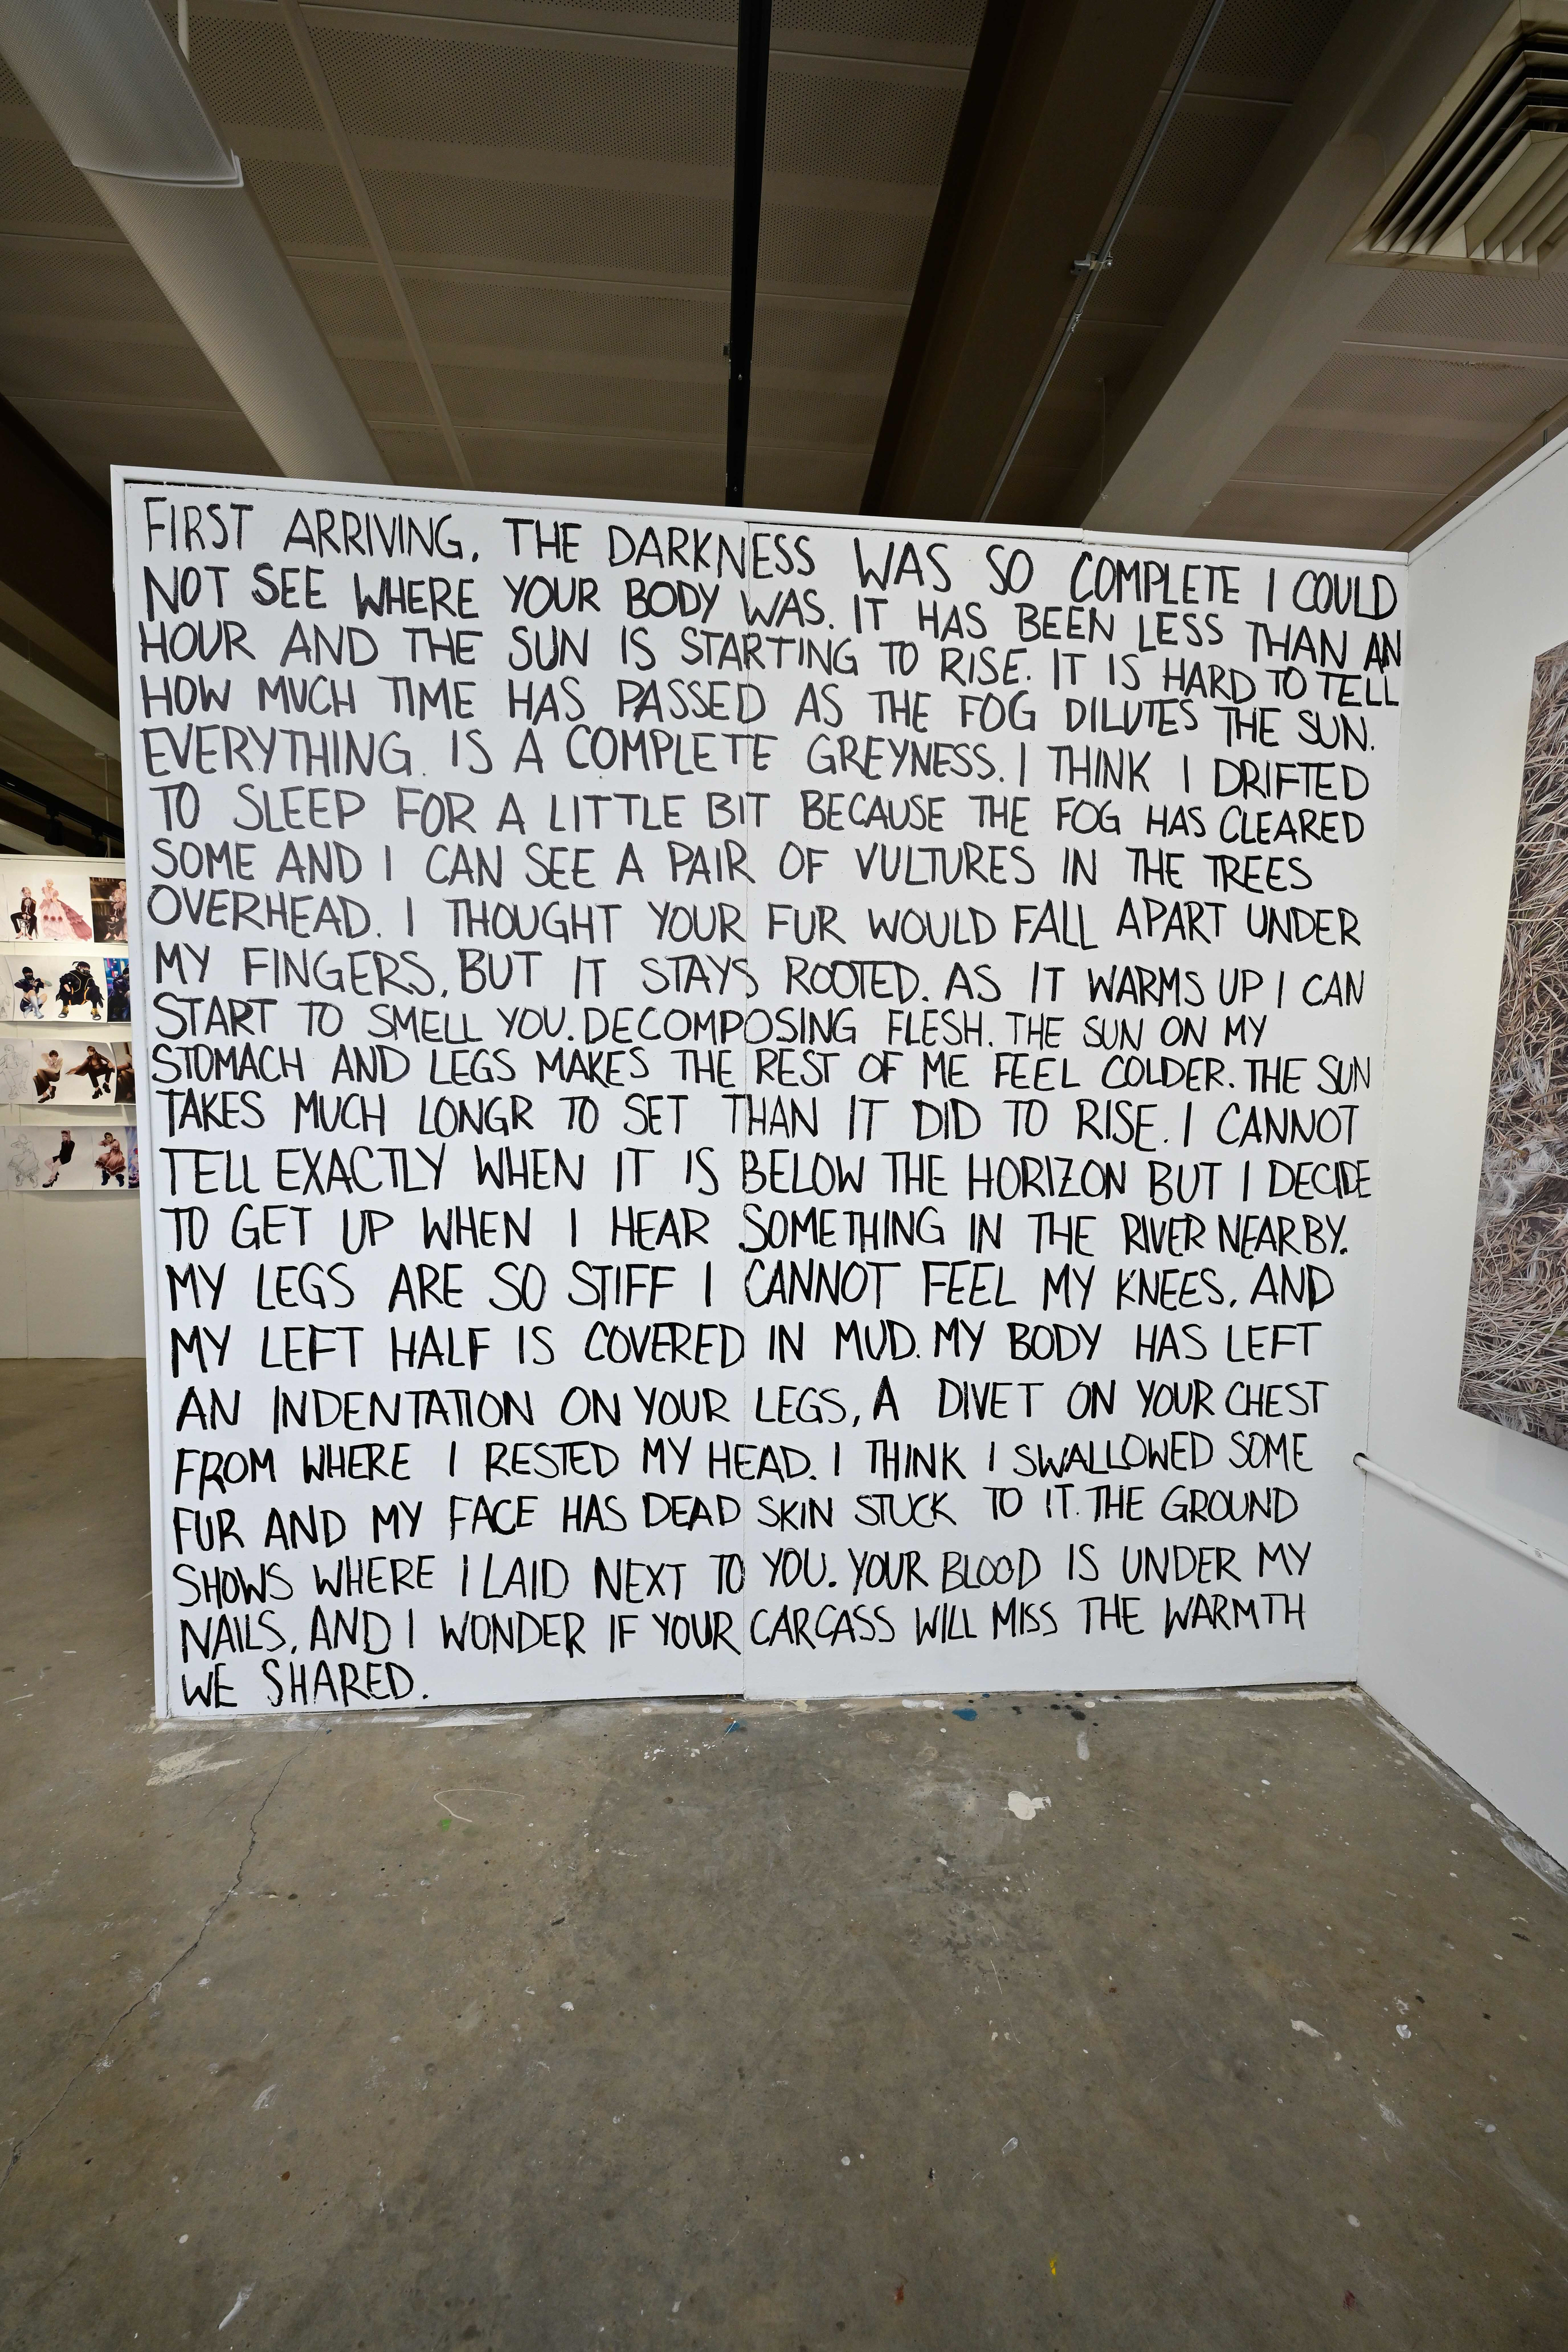 FIRST ARRIVING, THE DARKNESS WAS SO COMPLETE I COULD
NOT SEE WHERE YOUR BODY WAS. IT HAS BEEN LESS THAN AN
HOUR AND THE SUN IS STARTING TO RISE. IT IS HARD TO TELL
HOW MUCH TIME HAS PASSED AS THE FOG DILUTES THE SUN.
EVERYTHING IS A COMPLETE GREYNESS. I THINK I DRIFTED
TO SLEEP FOR A LITTLE BIT BECAUSE THE FOG HAS CLEARED
SOME AND I CAN SEE A PAIR OF VULTURES IN THE TREES
OVERHEAD. I THOUGHT YOUR FUR WOULD FALL APART UNDER
MY FINGERS, BUT IT STAYS ROOTED. AS IT WARMS UP I CAN
START TO SMELL YOU. DECOMPOSING FLESH. THE SUN ON MY
STOMACH AND LEGS MAKES THE REST OF ME FEEL COLDER. THE SUN
TAKES MUCH LONGR TO SET THAN IT DID TO RISE. I CANNOT
TELL EXACTLY WHEN IT IS BELOW THE HORIZON BUT I DECIDE
TO GET UP WHEN I HEAR SOMETHING IN THE RIVER NEARBY.
MY LEGS ARE SO STIFF I CANNOT FEEL MY KNEES, AND
MY LEFT HALF IS COVERED IN MUD. MY BODY HAS LEFT
AN INDENTATION ON YOUR LEGS, A DIVET ON YOUR CHEST
FROM WHERE I RESTED MY HEAD. I THINK I SWALLOWED SOME
FUR AND MY FACE HAS DEAD SKIN STUCK TO IT. THE GROUND
SHOWS WHERE I LAID NEXT TO YOU. YOUR BLOOD IS UNDER MY
NAILS, AND I WONDER IF YOUR CARCASS WILL MISS THE WARMTH
WE SHARED.